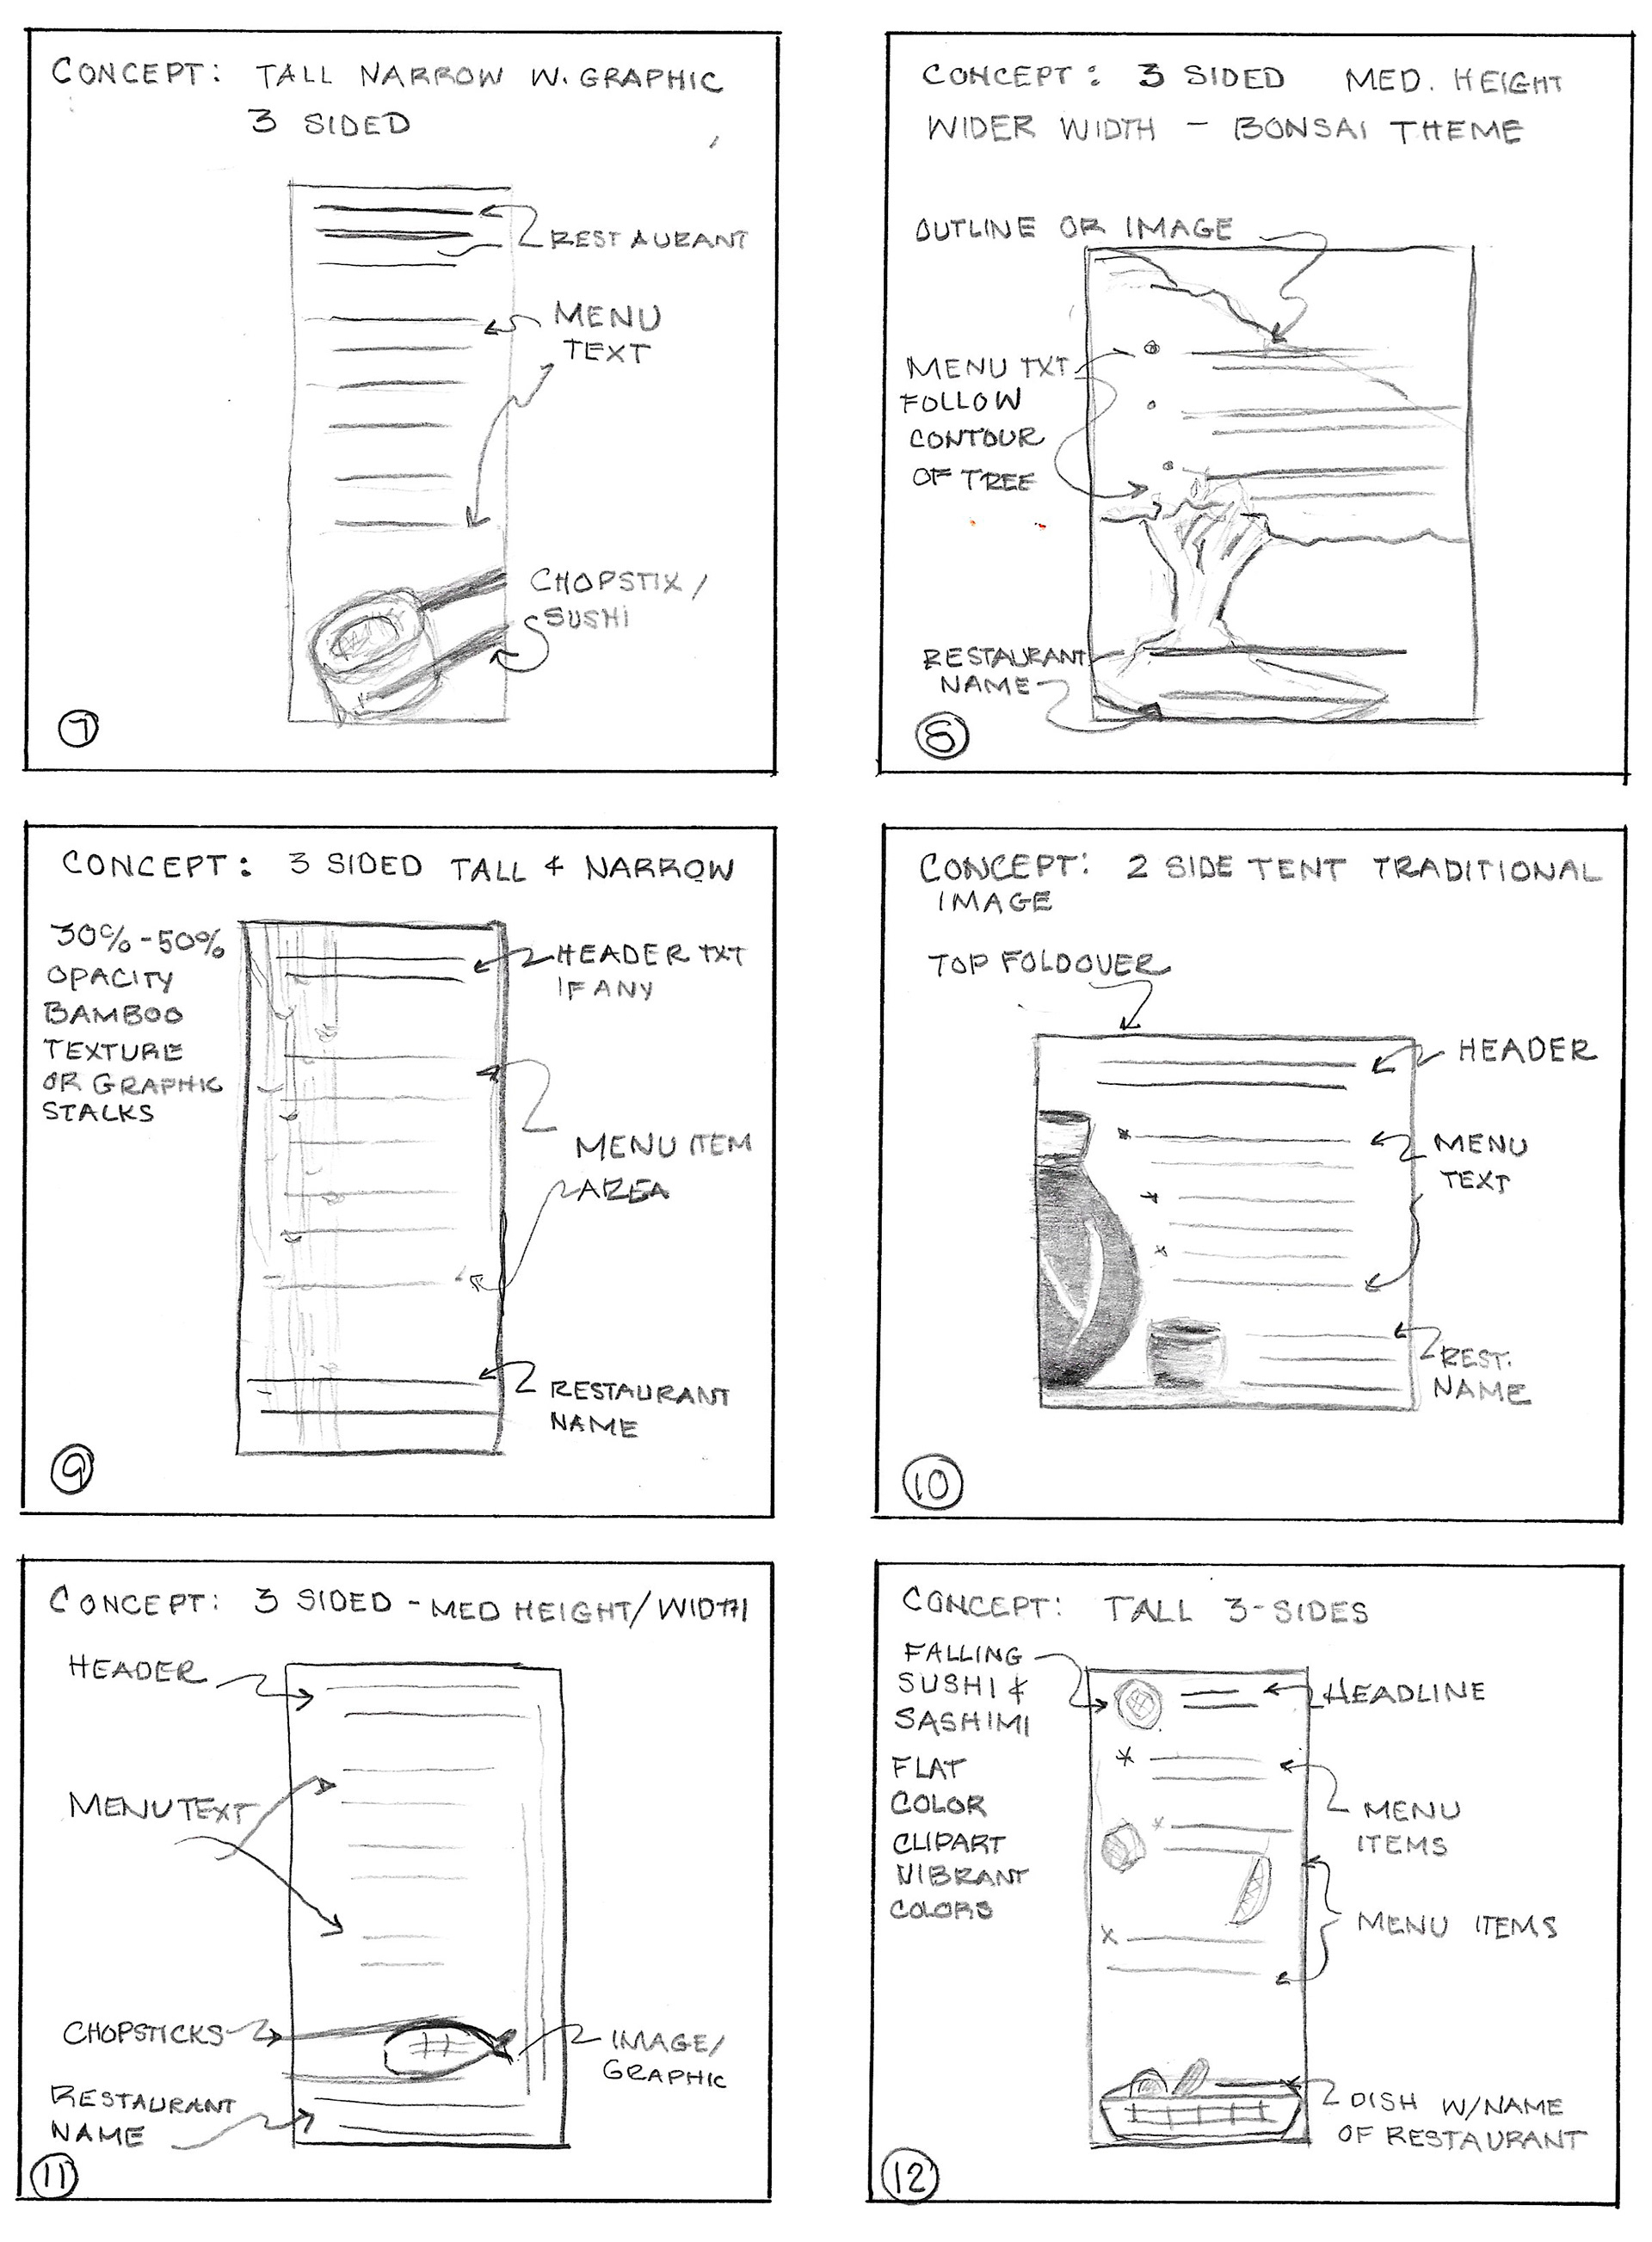 CONCEPT: TALL NARROW W. GRAPHIC
3 SIDED
RESTAURANT
MENU
TEXT
CHOPSTIX/
SUSHI
7
CONCEPT: 3 SIDED MED. HEIGHT
WIDER WIDTH - BONSAI THEME
OUTLINE OR IMAGE
MENU TXT
FOLLOW
CONTOUR
OF TREE
RESTAURANT
NAME
8
CONCEPT: 3 SIDED TALL & NARROW
30%-50%
OPACITY
BAMBOO
TEXTURE
OR GRAPHIC
STALKS
HEADER TXT
IF ANY
MENU ITEM
AREA
RESTAURANT
NAME
9
CONCEPT: 2 SIDE TENT TRADITIONAL
IMAGE
TOP FOLDOVER
HEADER
MENU
TEXT
REST.
NAME
10
CONCEPT: 3 SIDED - MED HEIGHT/WIDTH
HEADER
MENU TEXT
CHOPSTICKS
IMAGE/
GRAPHIC
RESTAURANT
NAME
11
CONCEPT: TALL 3-SIDES
FALLING
SUSHI &
SASHIMI
FLAT
COLOR
CLIPART
VIBRANT
COLORS
HEADLINE
MENU
ITEMS
MENU ITEMS
DISH W/NAME
OF RESTAURANT
12